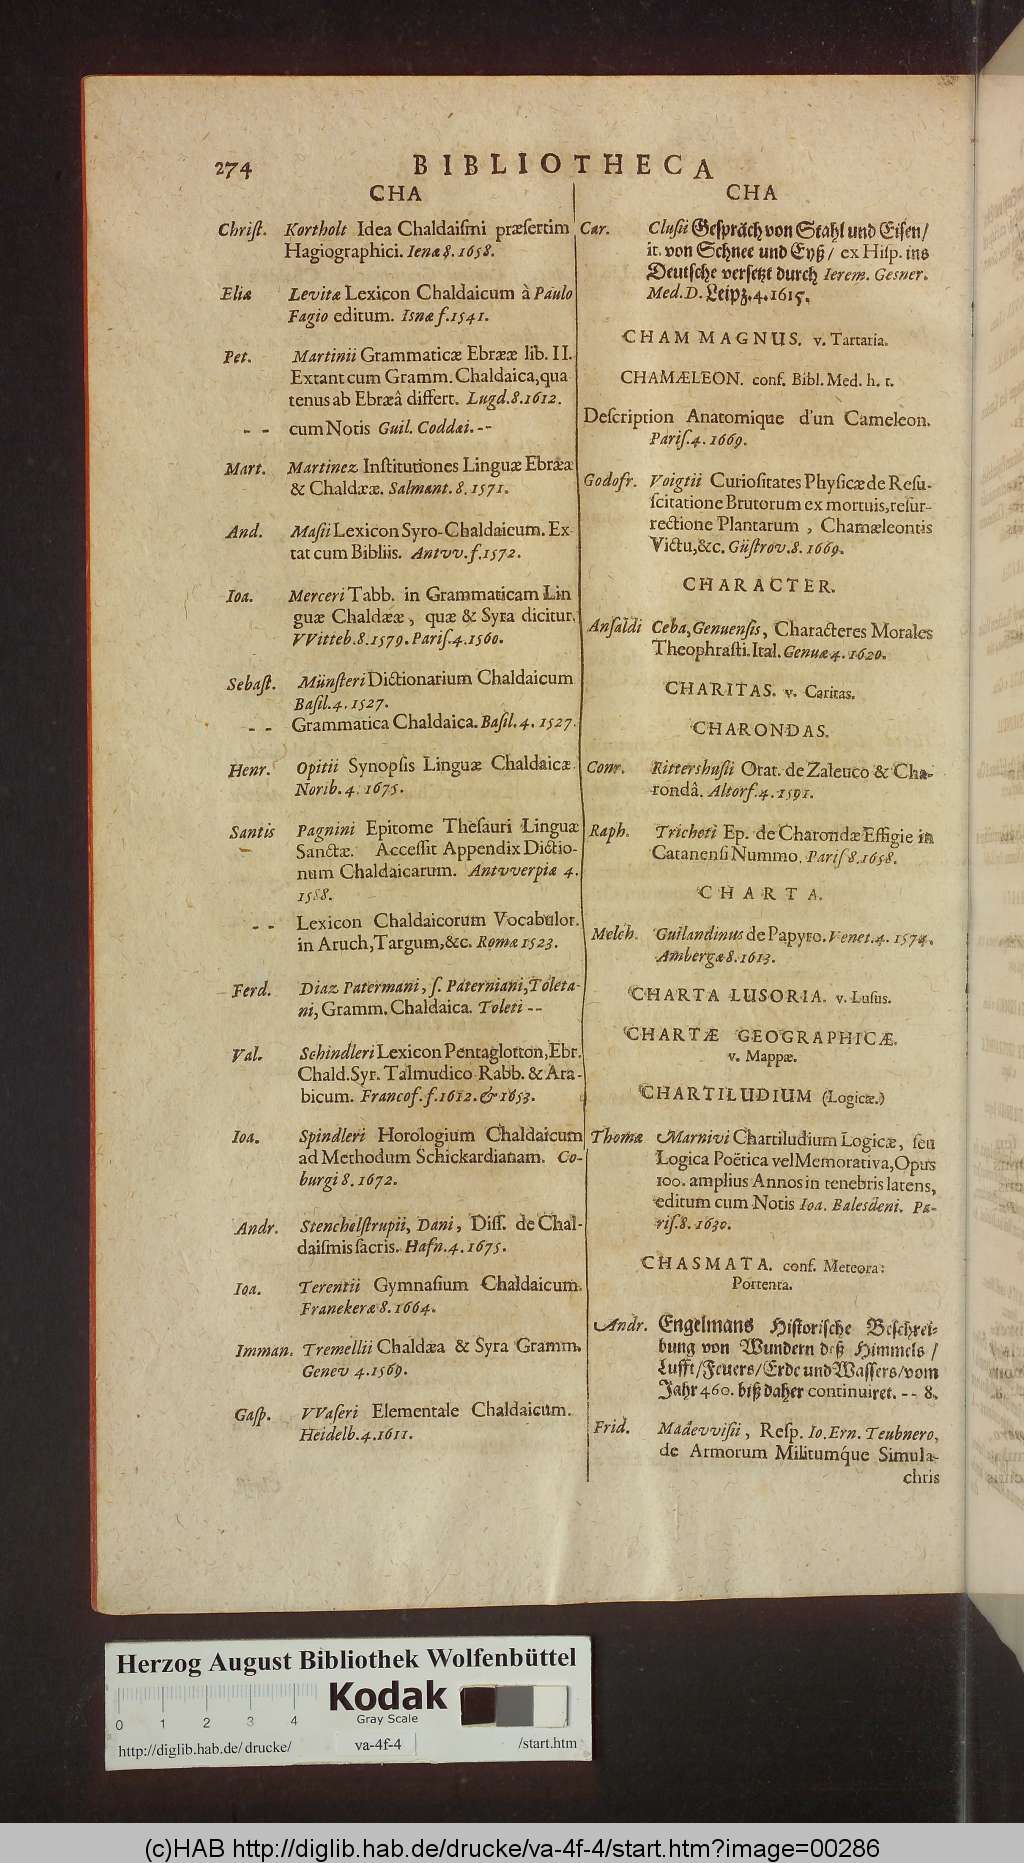 274 BIBLIOTHECA
CHA
Christ. Kortholt Idea Chaldaismi præsertim
Hagiographici. Ienæ 8. 1658.
Eliæ Levitæ Lexicon Chaldaicum à Paulo
Fagio editum. Isnæ f. 1541.
Pet. Martinii Grammaticæ Ebrææ lib. II.
Extant cum Gramm. Chaldaica, qua
tenus ab Ebræâ differt. Lugd. 8. 1612.
- - cum Notis Guil. Coddæi. --
Mart. Martinez Institutiones Linguæ Ebrææ
& Chaldææ. Salmant. 8. 1571.
And. Masii Lexicon Syro-Chaldaicum. Ex-
tat cum Bibliis. Antvv. f. 1572.
Ioa. Merceri Tabb. in Grammaticam Lin
guæ Chaldææ, quæ & Syra dicitur.
VVitteb. 8. 1579. Paris. 4. 1560.
Sebast. Münsteri Dictionarium Chaldaicum
Basil. 4. 1527.
- - Grammatica Chaldaica. Basil. 4. 1527.
Henr. Opitii Synopsis Linguæ Chaldaicæ
Norib. 4. 1675.
Santis Pagnini Epitome Thesauri Linguæ
Sanctæ. Accessit Appendix Dictio-
num Chaldaicarum. Antvverpiæ 4.
1588.
- - Lexicon Chaldaicorum Vocabulor.
in Aruch, Targum, &c. Romæ 1523.
Ferd. Diaz Patermani, s. Paterniani, Toleta-
ni, Gramm. Chaldaica. Toleti --
Val. Schindleri Lexicon Pentaglotton, Ebr.
Chald. Syr. Talmudico Rabb. & Ara-
bicum. Francof. f. 1612. & 1653.
Ioa. Spindleri Horologium Chaldaicum
ad Methodum Schickardianam. Co-
burgi 8. 1672.
Andr. Stenchelstrupii, Dani, Diss. de Chal-
daismis sacris. Hafn. 4. 1675.
Ioa. Terentii Gymnasium Chaldaicum.
Franekeræ 8. 1664.
Imman. Tremellii Chaldæa & Syra Gramm.
Genev 4. 1569.
Gasp. VVaseri Elementale Chaldaicum.
Heidelb. 4. 1611.
CHA
Car. Clusii Gespräch von Stahl und Eisen/
it. von Schnee und Eyß/ ex Hisp. ins
Deutsche versetzt durch Ierem. Gesner.
Med. D. Leipz. 4. 1615.
CHAM MAGNUS. v. Tartaria.
CHAMÆLEON. conf. Bibl. Med. h. t.
Description Anatomique d'un Cameleon.
Paris. 4. 1669.
Godofr. Voigtii Curiositates Physicæ de Resu-
scitatione Brutorum ex mortuis, resur-
rectione Plantarum, Chamæleontis
Victu, &c. Güstrov. 8. 1669.
CHARACTER.
Ansaldi Ceba, Genuensis, Characteres Morales
Theophrasti. Ital. Genuæ 4. 1620.
CHARITAS. v. Caritas.
CHARONDAS.
Conr. Rittershusii Orat. de Zaleuco & Cha-
rondâ. Altorf. 4. 1591.
Raph. Tricheti Ep. de Charondæ Effigie in
Catanensi Nummo. Paris 8. 1658.
CHARTA.
Melch. Guilandinus de Papyro. Venet. 4. 1574.
Ambergæ 8. 1613.
CHARTA LUSORIA. v. Lusus.
CHARTÆ GEOGRAPHICÆ.
v. Mappæ.
CHARTILUDIUM (Logicæ.)
Thomæ Marnivi Chartiludium Logicæ, seu
Logica Poëtica vel Memorativa, Opus
100. amplius Annos in tenebris latens,
editum cum Notis Ioa. Balesdeni. Pa-
ris. 8. 1630.
CHASMATA. conf. Meteora:
Portenta.
Andr. Engelmans Historische Beschrei-
bung von Wundern deß Himmels/
Lufft/Feuers/Erde und Wassers/vom
Jahr 460. biß daher continuiret. -- 8.
Frid. Madevvisii, Resp. Io. Ern. Teubnero,
de Armorum Militumque Simula-
chris
Herzog August Bibliothek Wolfenbüttel
Kodak
Gray Scale
0 1 2 3 4
http://diglib.hab.de/drucke/ va-4f-4 /start.htm
(c)HAB http://diglib.hab.de/drucke/va-4f-4/start.htm?image=00286